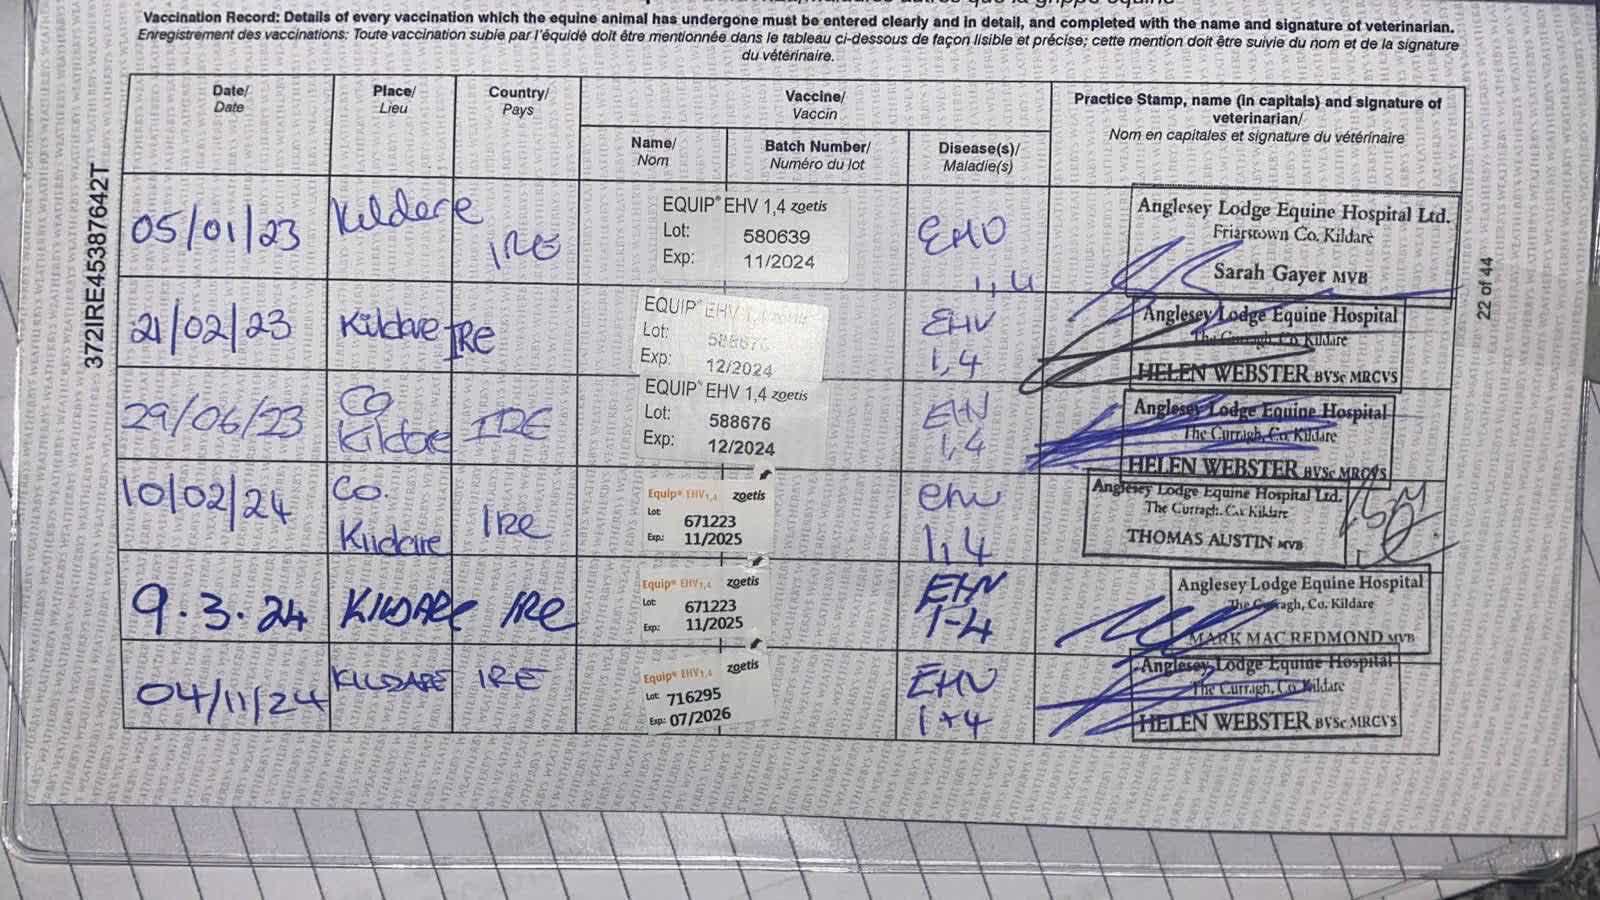 Vaccination Record: Details of every vaccination which the equine animal has undergone must be entered clearly and in detail, and completed with the name and signature of veterinarian.
Enregistrement des vaccinations: Toute vaccination subie par l'équidé doit être mentionnée dans le tableau ci-dessous de façon lisible et précise; cette mention doit être suivie du nom et de la signature
du vétérinaire.
Date/ Place/ Country/ Vaccine/ Practice Stamp, name (in capitals) and signature of
Date Lieu Pays Vaccin veterinarian/
Nom en capitales et signature du vétérinaire
Name/ Batch Number/ Disease(s)/
Nom Numéro du lot Maladie(s)
372IRE45387642T
22 of 44
05/01/23 Kildare IRE
EQUIP® EHV 1,4 zoetis
Lot: 580639
Exp: 11/2024
EHV
1,4
Anglesey Lodge Equine Hospital Ltd.
Friarstown Co. Kildare
Sarah Gayer MVB
21/02/23 Kildare IRE
EQUIP® EHV 1,4 zoetis
Lot: 588676
Exp: 12/2024
EHV
1,4
Anglesey Lodge Equine Hospital
The Curragh, Co. Kildare
HELEN WEBSTER BVSc MRCVS
29/06/23 Co Kildare IRE
EQUIP® EHV 1,4 zoetis
Lot: 588676
Exp: 12/2024
EHV
1,4
Anglesey Lodge Equine Hospital
The Curragh, Co. Kildare
HELEN WEBSTER BVSc MRCVS
10/02/24 Co. Kildare IRE
Equip® EHV1,4 zoetis
Lot: 671223
Exp.: 11/2025
ehv
1,4
Anglesey Lodge Equine Hospital Ltd.
The Curragh, Co. Kildare
THOMAS AUSTIN MVB
9.3.24 KILDARE IRE
Equip® EHV1,4 zoetis
Lot: 671223
Exp.: 11/2025
EHV
1-4
Anglesey Lodge Equine Hospital
The Curragh, Co. Kildare
MARK MAC REDMOND MVB
04/11/24 KILDARE IRE
Equip® EHV1,4 zoetis
Lot: 716295
Exp.: 07/2026
EHV
1+4
Anglesey Lodge Equine Hospital
The Curragh, Co. Kildare
HELEN WEBSTER BVSc MRCVS